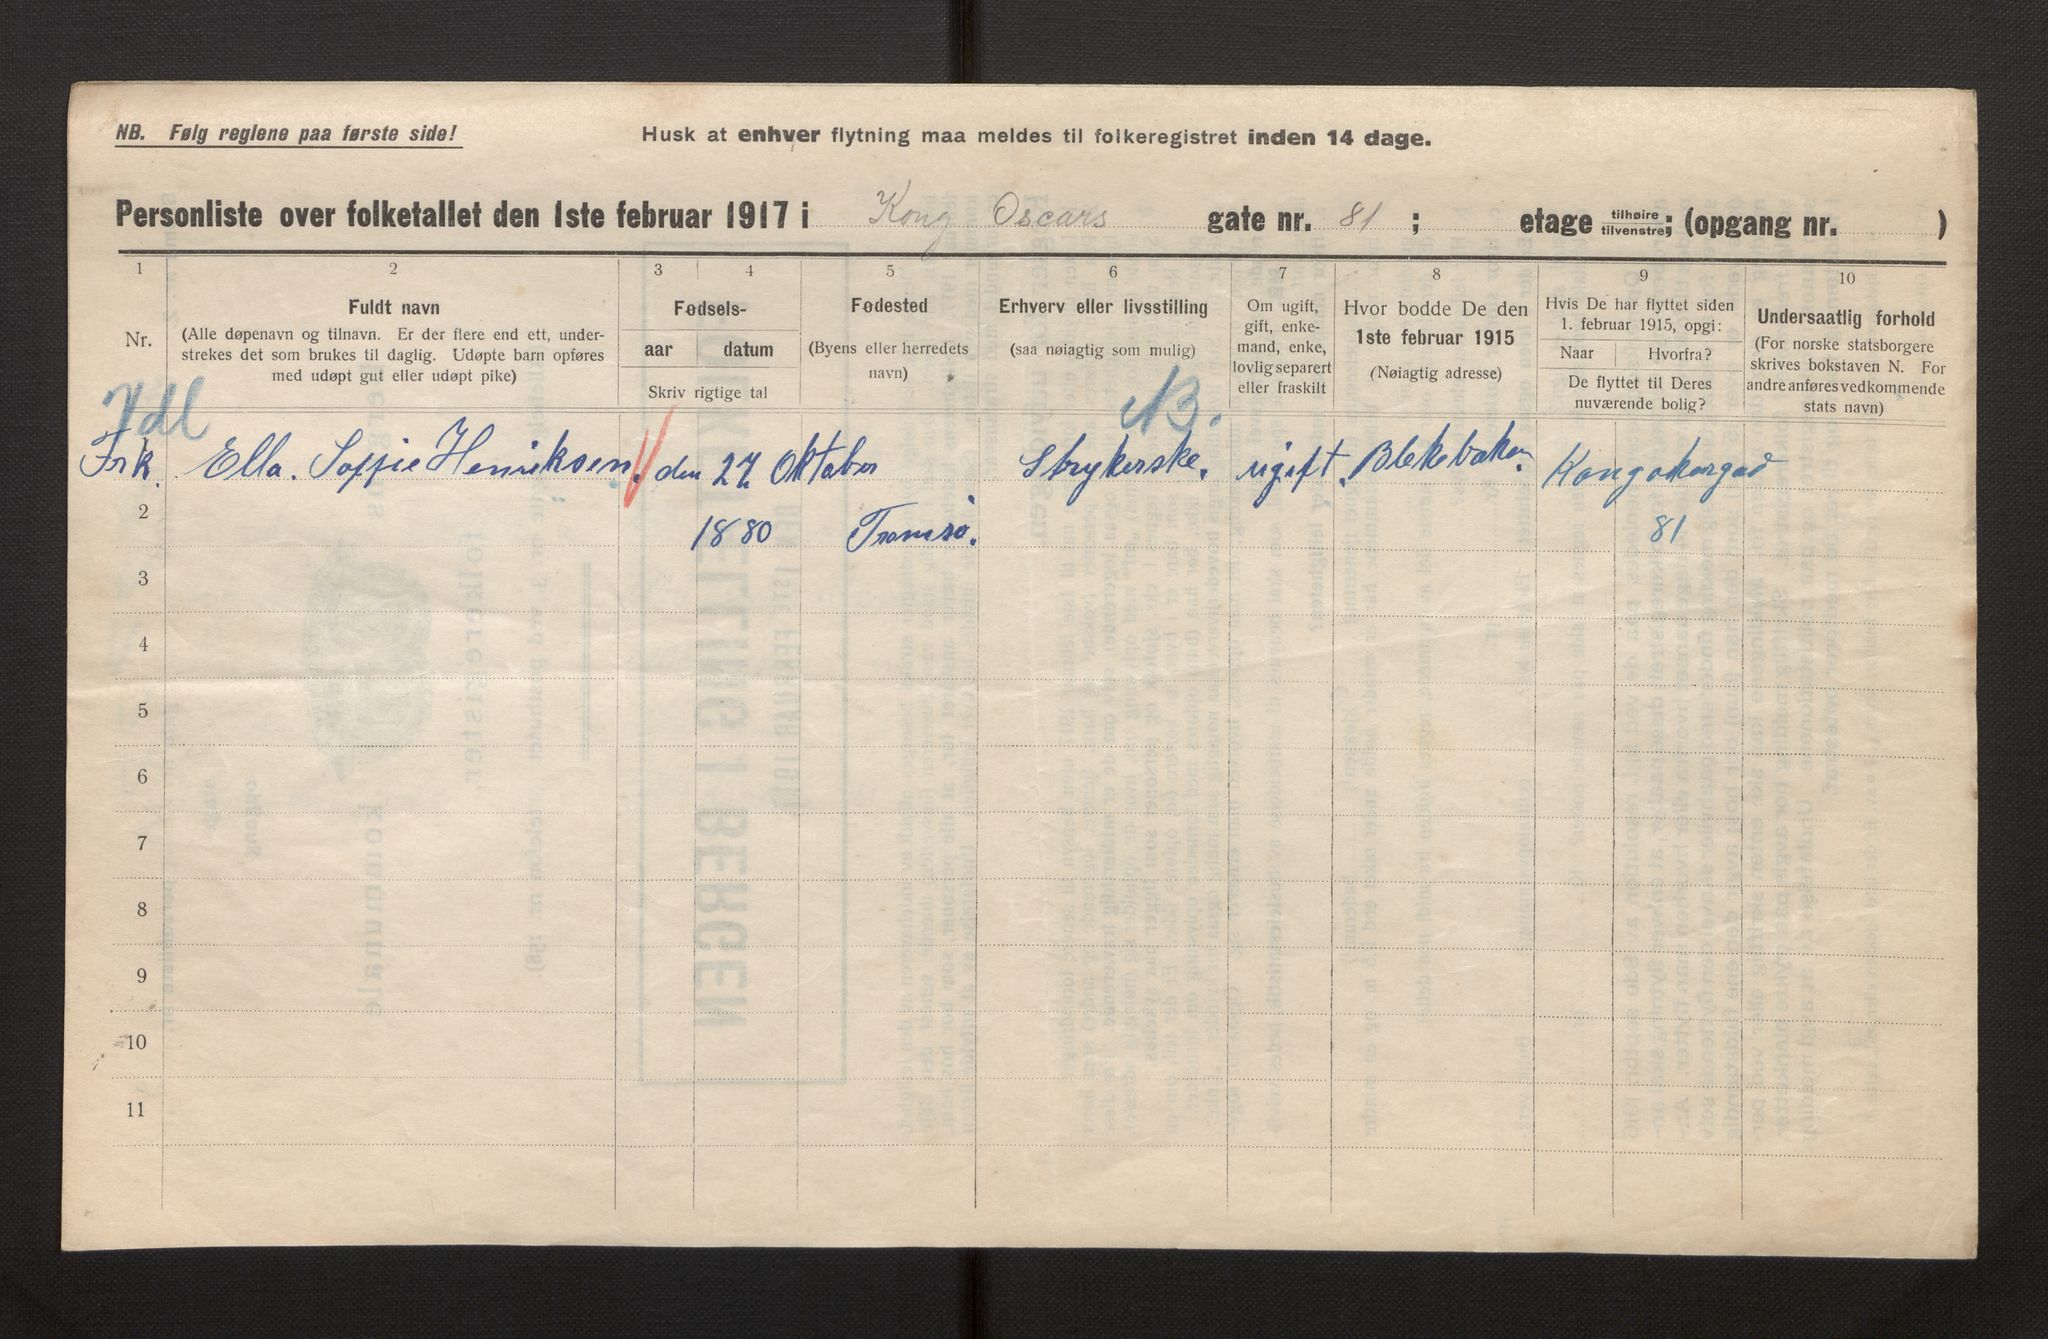 NB. Følg reglene paa første side!
Husk at enhver flytning maa meldes til folkeregistret inden 14 dage.
Personliste over folketallet den 1ste februar 1917 i Kong Oscars gate nr. 81 ; etage tilhøire tilvenstre; (opgang nr. )
1 2 3 4 5 6 7 8 9 10
Nr.
Fuldt navn
(Alle døpenavn og tilnavn. Er der flere end ett, under-
strekes det som brukes til daglig. Udøpte barn opføres
med udøpt gut eller udøpt pike)
Fødsels-
aar datum
Skriv rigtige tal
Fødested
(Byens eller herredets
navn)
Erhverv eller livsstilling
(saa nøiagtig som mulig)
Om ugift,
gift, enke-
mand, enke,
lovlig separert
eller fraskilt
Hvor bodde De den
1ste februar 1915
(Nøiagtig adresse)
Hvis De har flyttet siden
1. februar 1915, opgi:
Naar Hvorfra?
De flyttet til Deres
nuværende bolig?
Undersaatlig forhold
(For norske statsborgere
skrives bokstaven N. For
andre anføres vedkommende
stats navn)
Frk. Ella. Soffie Henriksen. den 27 Oktober Strykerske. ugift. Blekebaken. Kongokargad
2 1880 Tromsø. 81
3
4
5
6
7
8
9
10
11